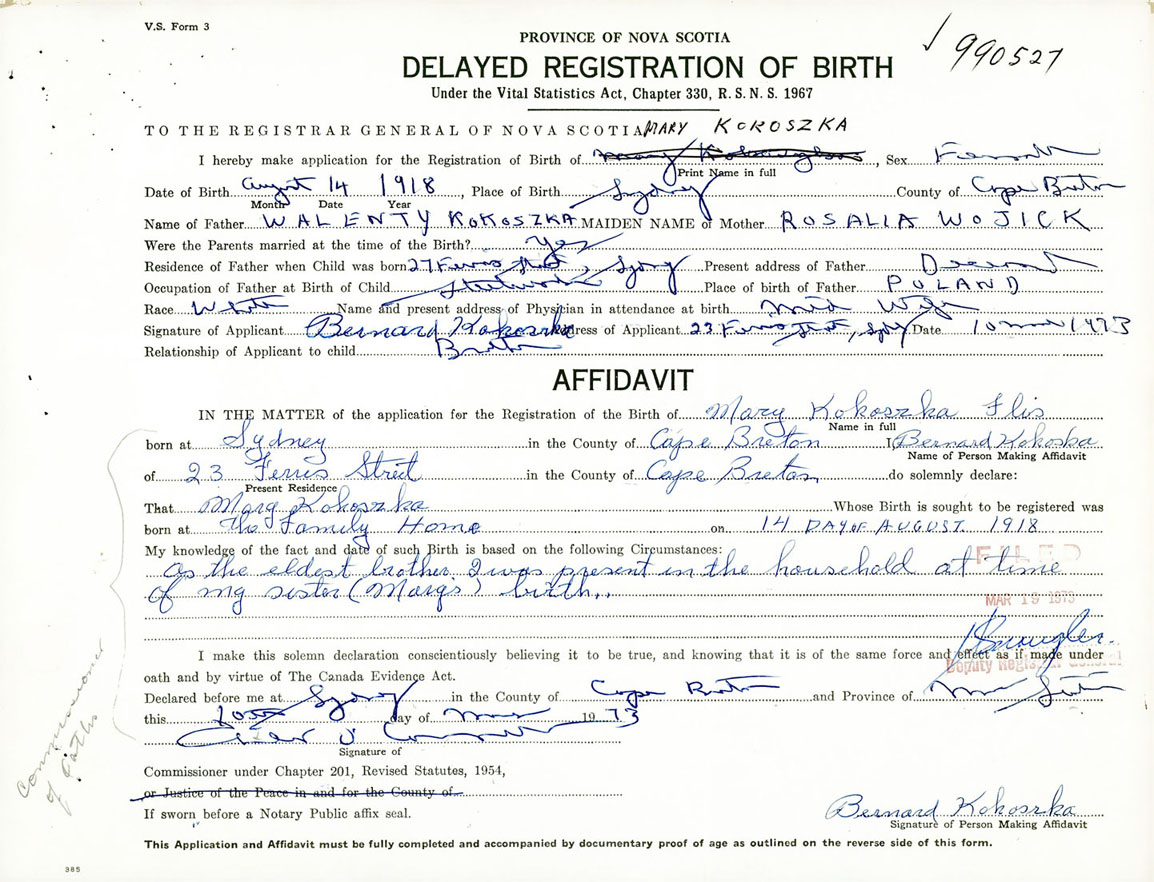 V.S. Form 3
PROVINCE OF NOVA SCOTIA
990527
DELAYED REGISTRATION OF BIRTH
Under the Vital Statistics Act, Chapter 330, R. S. N. S. 1967
TO THE REGISTRAR GENERAL OF NOVA SCOTIA MARY KOKOSZKA
I hereby make application for the Registration of Birth of , Sex Female
Print Name in full
Date of Birth August 14 1918 , Place of Birth Sydney County of Cape Breton
Month Date Year
Name of Father WALENTY KOKOSZKA MAIDEN NAME of Mother ROSALIA WOJICK
Were the Parents married at the time of the Birth? Yes
Residence of Father when Child was born 27 Ferris Street, Sydney Present address of Father Deceased
Occupation of Father at Birth of Child Steelworker Place of birth of Father POLAND
Race White Name and present address of Physitian in attendance at birth Mid Wife
Signature of Applicant Bernard Kokoszka Address of Applicant 23 Ferris Street, Sydney Date 10 1973
Relationship of Applicant to child Brother
AFFIDAVIT
IN THE MATTER of the application for the Registration of the Birth of Mary Kokoszka Flis
Name in full
born at Sydney in the County of Cape Breton I Bernard Kokoska
Name of Person Making Affidavit
of 23 Ferris Street in the County of Cape Breton do solemnly declare:
Present Residence
That Mary Kokoszka Whose Birth is sought to be registered was
born at The Family Home on 14 DAY OF AUGUST 1918
My knowledge of the fact and date of such Birth is based on the following Circumstances:
As the eldest brother I was present in the household at time
of my sister (Mary's) birth..
FILED
MAR 19 1973
I make this solemn declaration conscientiously believing it to be true, and knowing that it is of the same force and effect as if made under
Deputy Registrar General
oath and by virtue of The Canada Evidence Act.
Declared before me at Sydney in the County of Cape Breton and Province of Nova Scotia
this day of 1973
Signature of
Commissioner under Chapter 201, Revised Statutes, 1954,
or Justice of the Peace in and for the County of
If sworn before a Notary Public affix seal.
Commissioner
of Oaths
Bernard Kokoszka
Signature of Person Making Affidavit
This Application and Affidavit must be fully completed and accompanied by documentary proof of age as outlined on the reverse side of this form.
385